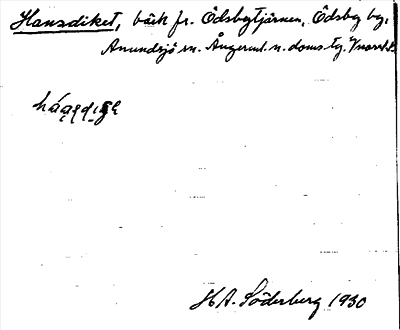 Hansdiket, bäck fr. Ödsbytjärnen, Ödsby by,
Anundsjö sn. Ångerml. n. doms. tg.
H.A. Söderberg 1930